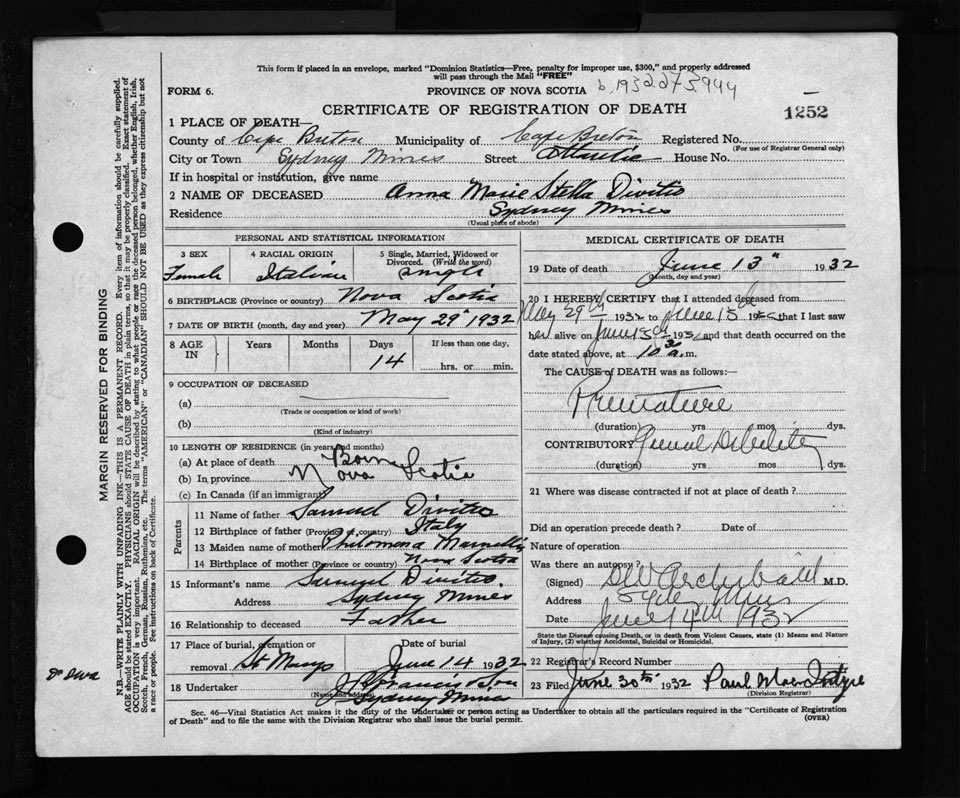 This form if placed in an envelope, marked "Dominion Statistics—Free, penalty for improper use, $300," and properly addressed
will pass through the Mail "FREE"
FORM 6. PROVINCE OF NOVA SCOTIA b. 1932 273944
CERTIFICATE OF REGISTRATION OF DEATH 1252
1 PLACE OF DEATH—
County of Cape Breton Municipality of Cape Breton Registered No.
(For use of Registrar General only)
City or Town Sydney Mines Street Atlantic House No.
If in hospital or institution, give name
2 NAME OF DECEASED Anna Marie Stella Divitis
Residence Sydney Mines
(Usual place of abode)
PERSONAL AND STATISTICAL INFORMATION
3 SEX 4 RACIAL ORIGIN 5 Single, Married, Widowed or
Divorced. (Write the word)
Female Italian Single
6 BIRTHPLACE (Province or country) Nova Scotia
7 DATE OF BIRTH (month, day and year) May 29" 1932
8 AGE IN Years Months Days If less than one day,
14 hrs. or min.
9 OCCUPATION OF DECEASED
(a)
(Trade or occupation or kind of work)
(b)
(Kind of industry)
10 LENGTH OF RESIDENCE (in years and months)
(a) At place of death Born
(b) In province Nova Scotia
(c) In Canada (if an immigrant)
Parents
11 Name of father Samuel Divitis
12 Birthplace of father (Province or country) Italy
13 Maiden name of mother Philomena
14 Birthplace of mother (Province or country) Nova Scotia
15 Informant's name Samuel Divitis.
Address Sydney Mines
16 Relationship to deceased Father
17 Place of burial, cremation or Date of burial
removal St Marys June 14 1932
18 Undertaker J Francis & Son
(Name and address) Sydney Mines
MEDICAL CERTIFICATE OF DEATH
19 Date of death June 13" 1932
(Month, day and year)
20 I HEREBY CERTIFY that I attended deceased from
May 29th 1932 to June 193 that I last saw
her alive on June 193 and that death occurred on
date stated above, at 10 30 a.m.
The CAUSE of DEATH was as follows:—
Premature
(duration) yrs mos dys.
CONTRIBUTORY General Debility
(duration) yrs mos dys.
21 Where was disease contracted if not at place of death?
Did an operation precede death? Date of
Nature of operation
Was there an autopsy?
(Signed) Archibald M.D.
Address Sydney Mines
Date June 14th 1932
State the Disease causing Death, or in death from Violent Causes, state (1) Means and Nature
of Injury, (2) whether Accidental, Suicidal or Homicidal.
22 Registrar's Record Number
23 Filed June 30th 1932 Paul MacIntyre
(Division Registrar)
Sec. 46—Vital Statistics Act makes it the duty of the Undertaker or person acting as Undertaker to obtain all the particulars required in the "Certificate of Registration
of Death" and to file the same with the Division Registrar who shall issue the burial permit. (OVER)
MARGIN RESERVED FOR BINDING
N.B.—WRITE PLAINLY WITH UNFADING INK—THIS IS A PERMANENT RECORD. Every item of information should be carefully supplied.
AGE should be stated EXACTLY. PHYSICIANS should STATE CAUSE OF DEATH in plain terms, so that it may be properly classified. Exact statement of
OCCUPATION is very important. RACIAL ORIGIN will be described by stating to what people or race the deceased person belonged, whether English, Irish,
Scotch, French, German, Russian, Ruthenian, etc. The terms "AMERICAN" or "CANADIAN" SHOULD NOT BE USED as they express citizenship but not
a race or people. See instructions on back of Certificate.